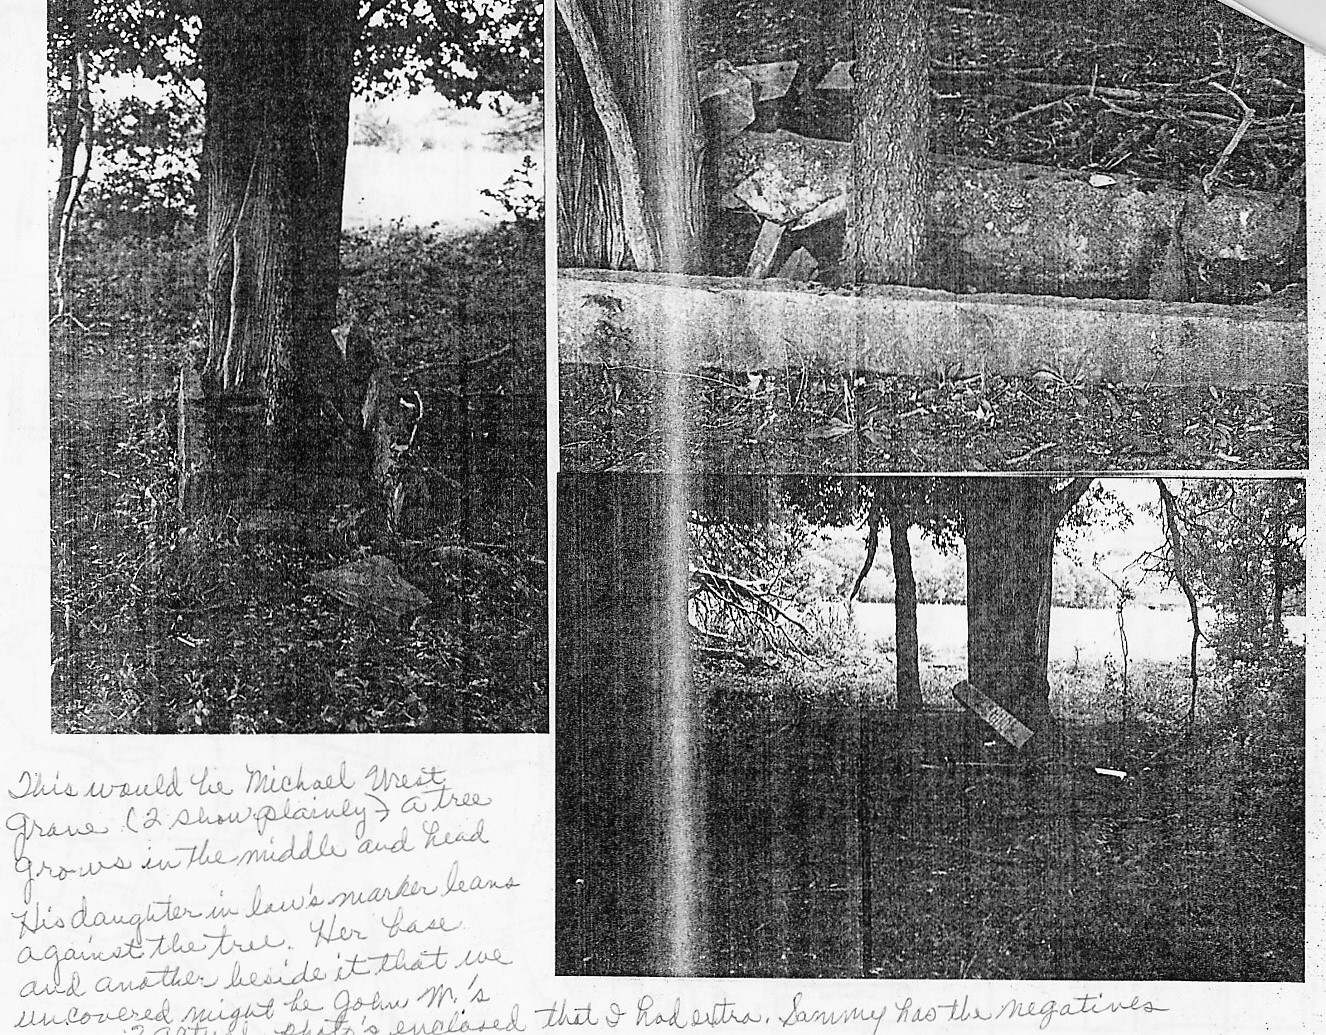 This would be Michael Wrest
grave. (2 show plainly) A tree
grows in the middle and head
His daughter in law's marker leans
against the tree. Her base
and another beside it that we
uncovered might be John M.'s
photo's enclosed that I had extra. Sammy has the negatives